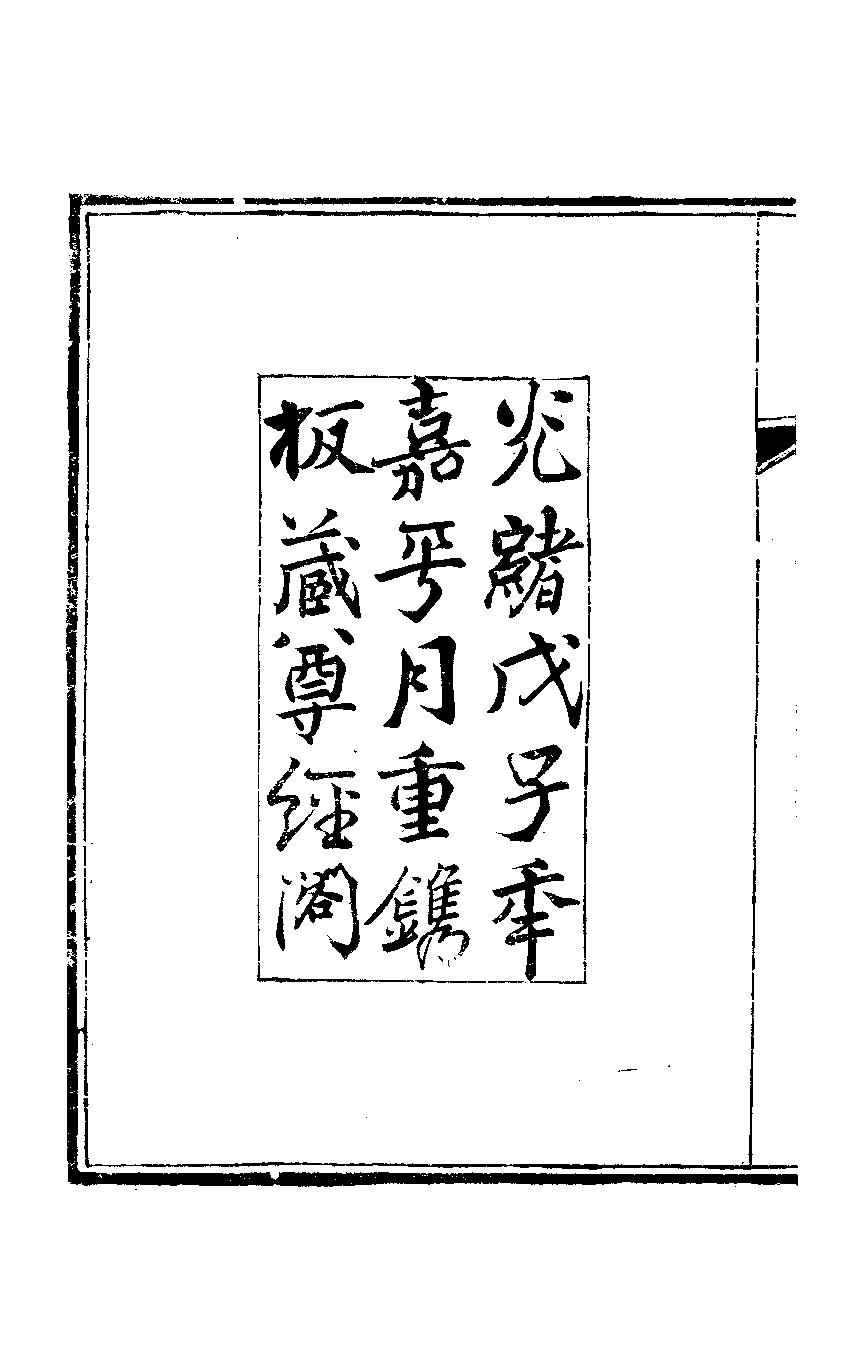 光緒戊子年
嘉平月重鐫
板藏尊經閣